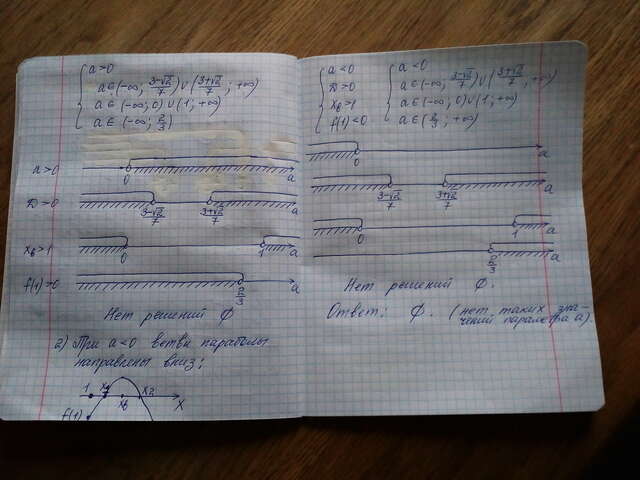 a>0
a∈(-∞; 3-√2/7)∪(3+√2/7; +∞)
a∈(-∞; 0)∪(1; +∞)
a∈(-∞; 2/3)
a>0
0
a
D>0
3-√2/7
3+√2/7
a
xв>1
0
1
a
f(1)>0
2/3
a
Нет решений ∅
2) При a<0 ветви параболы
направлены вниз:
1 x1 xв x2 x
f(1)
a<0
D>0
xв>1
f(1)<0
a<0
a∈(-∞; 3-√2/7)∪(3+√2/7; +∞)
a∈(-∞; 0)∪(1; +∞)
a∈(2/3; +∞)
0
a
3-√2/7
3+√2/7
a
0
1
a
2/3
a
Нет решений ∅.
Ответ: ∅. (нет таких зна-
чений параметра a).